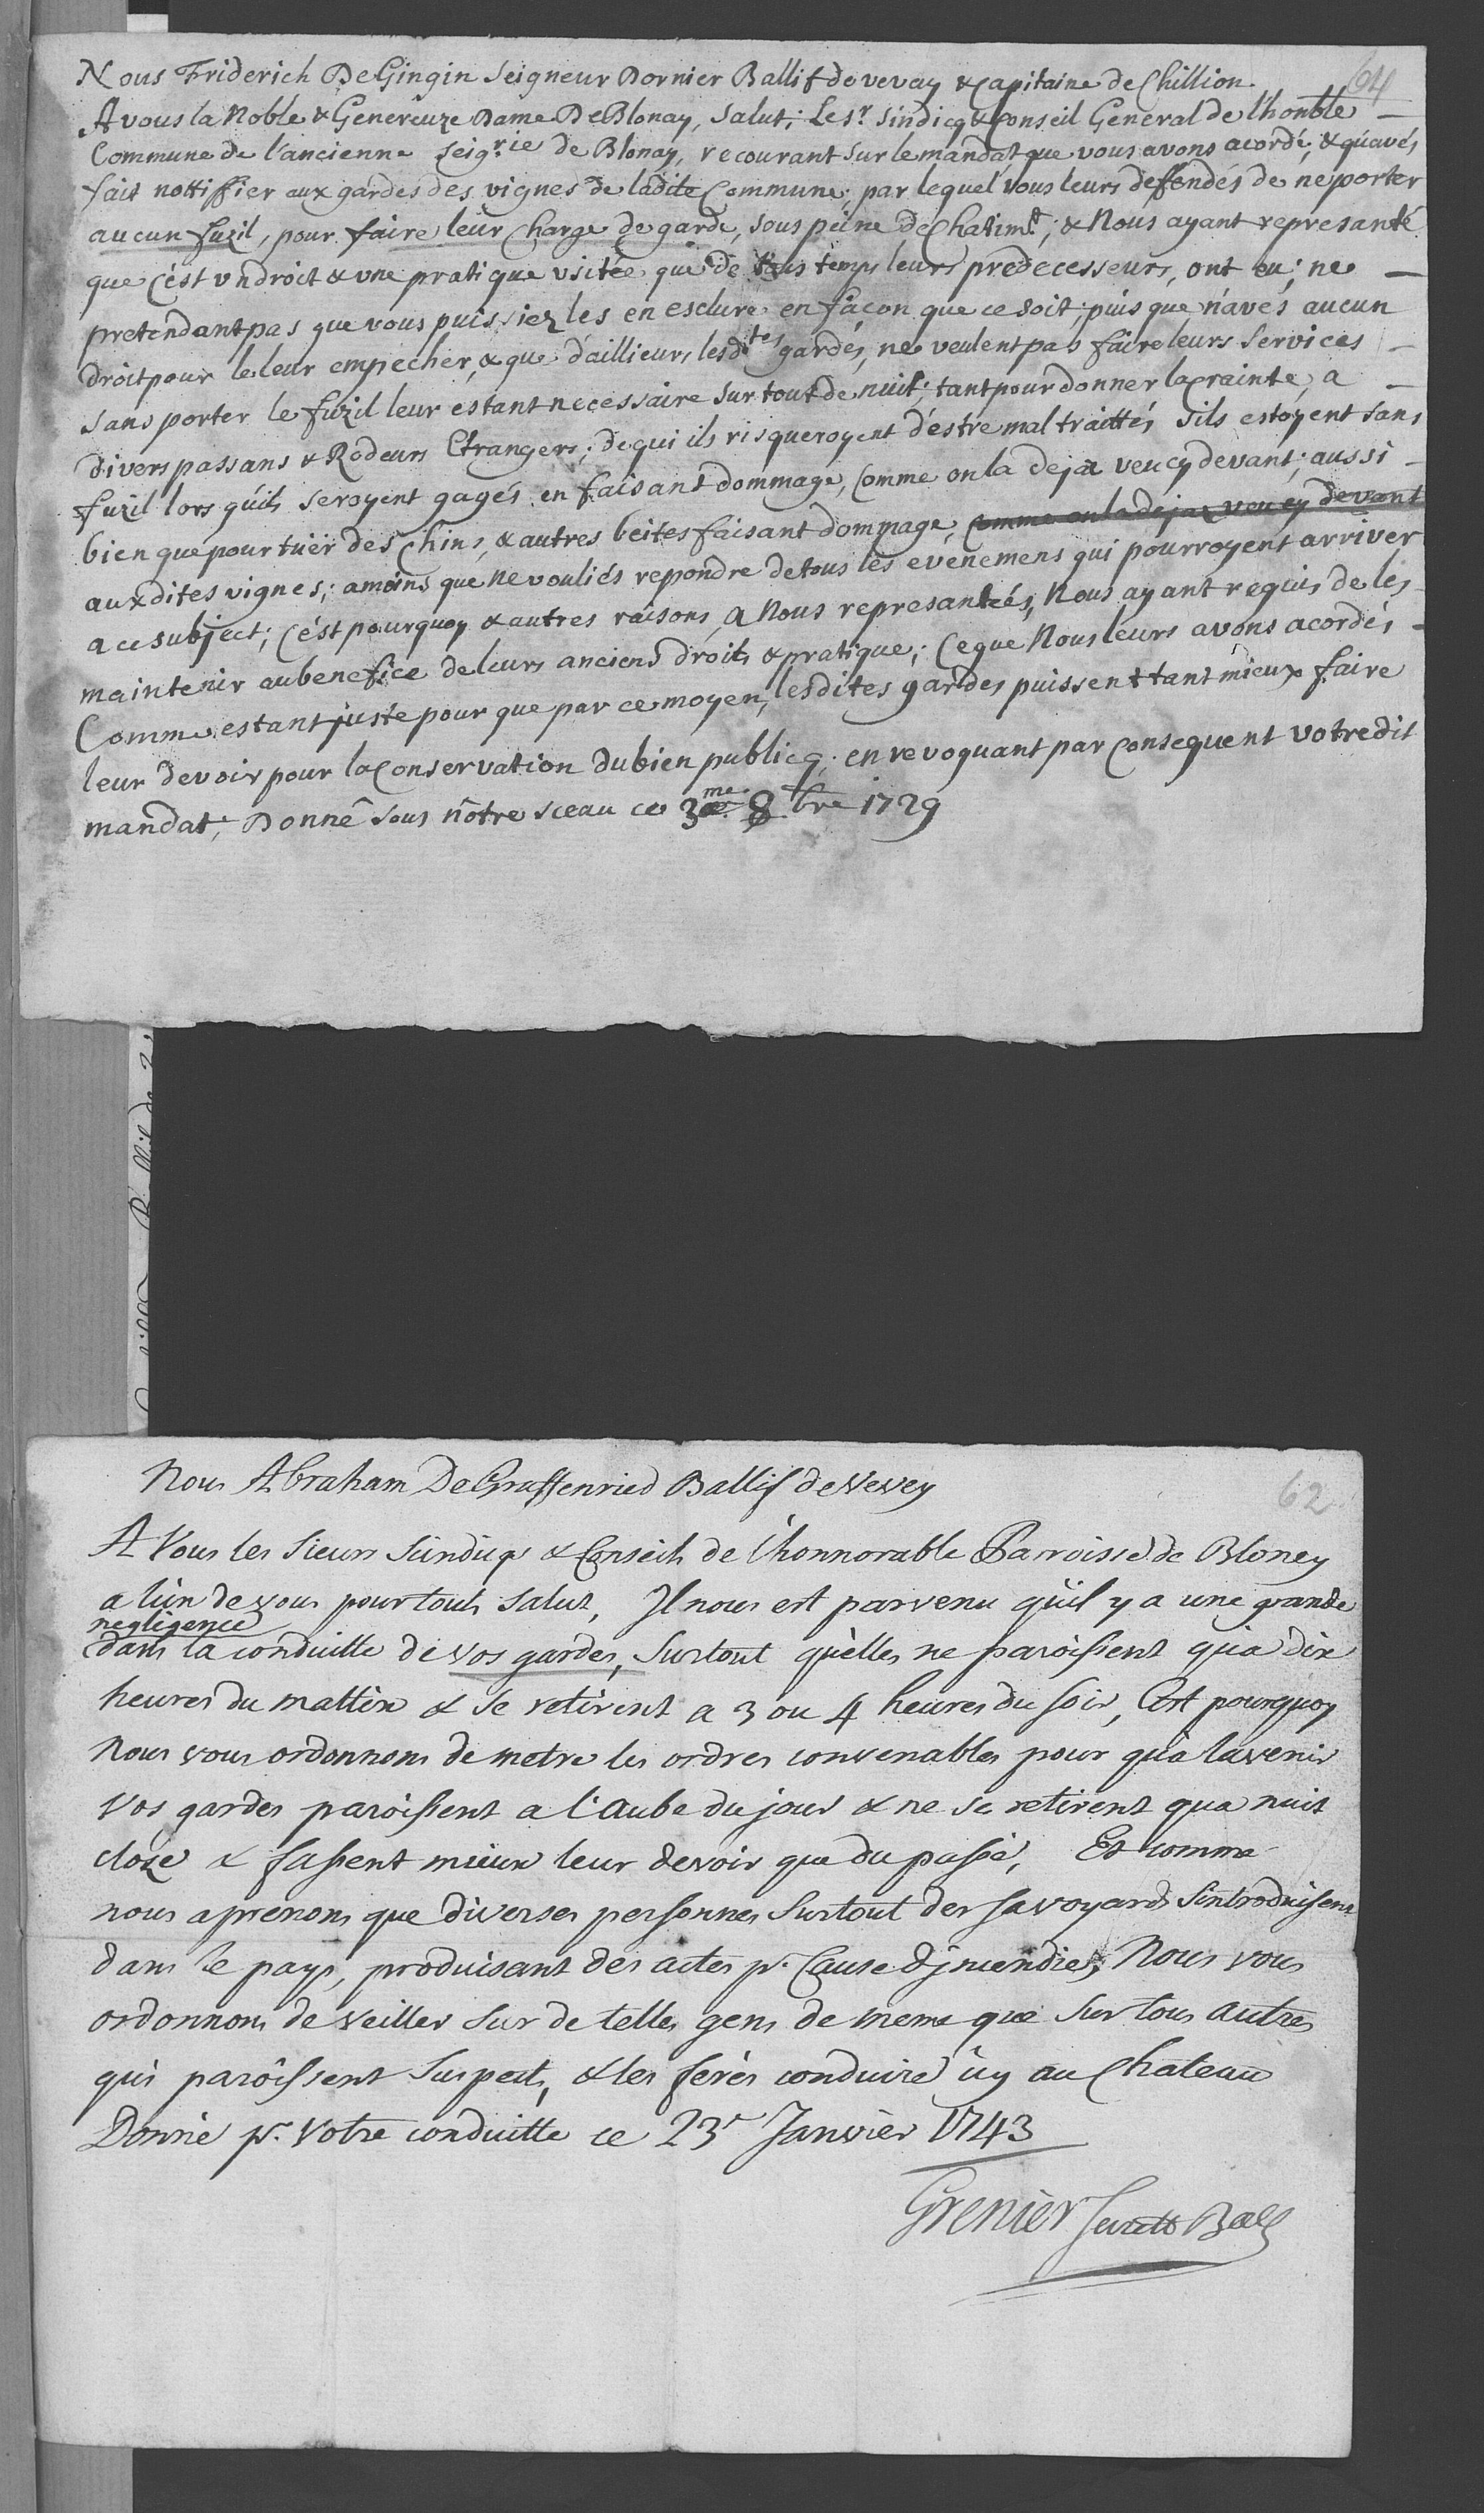 64
Nous Friderich De Gingin Seigneur Dornier Ballif de vevay & Capitaine de Chillion.
A vous la Noble & Genereuze Dame De Blonay, Salut; Les.r Sindicq & Conseil General de l'honble
Commune de l'ancienne Seig.rie de Blonay, recourant sur le mandat que vous avons acordé, & qu'avés
fait nottiffier aux gardes des vignes de ladite Commune; par lequel vous leurs deffendés de ne porter
aucun fuzil, pour faire leur charge de garde, sous peine de Chatimt; & Nous ayant represanté
que c'est vn droit & vne pratique vsitée que de tous temps leurs predecesseurs, ont eu; ne
pretendant pas que vous puissiez les en esclure en façon que ce soit; puis que n'avés aucun
droit pour le leur empecher, & que d'aillieurs lesdtes gardes, ne veulent pas faire leurs services
sans porter le fuzil leur estant necessaire sur tout de nuit; tant pour donner la crainte, a
divers passans & Rodeurs Etrangers; de qui ils risqueroyent d'estre mal traittés sils estoyent sans
fuzil lors qu'ils seroyent gagés en faisant dommage, Comme on la deja veu cy devant; aussi
bien que pour tuër des Chins, & autres beites faisant dommage, comme on la deja veu cy devant
auxdites vignes; amoins que ne vouliés repondre de tous les evenemens qui pourroyent arriver
a ce subject; C'est pourquoy & autres raisons, a Nous represantées, Nous ayant requis de les
maintenir au benefice de leurs anciens droits & pratique; Ce que Nous leurs avons acordés
Comme estant juste pour que par ce moyen, lesdites gardes puissent tant mieux faire
leur devoir pour la Conservation du bien publicq; en revoquant par Consequent votredit
mandat, Donné sous nôtre sceau ce 3me 8bre 1729
62
Nous Abraham De Graffenried Ballif de Vevey
A Vous les Sieurs Scindiqs & Conseils de l'honnorable Parroisse de Bloney
a l'un de vous pour touts Salut, Il nous est parvenu qu'il y a une grande
negligence
dans la conduitte de vos gardes, Surtout qu'elles ne paroissent qu'a dix
heures du mattin & se retirent a 3 ou 4 heures du soir, C'est pourquoy
Nous vous ordonnons de metre les ordres convenables pour qu'a lavenir
Vos gardes paroissent a l'Aube du jour & ne se retirent qua nuit
cloze & fassent mieux leur devoir que du passé, Et comme
nous aprenons que diverses personnes Surtout des Savoyards Sintroduisent
dans le pays, produisant des actes pr. Cause d'jncendies, Nous vous
ordonnons de veiller sur de telles gens de meme que sur tous autres
qui paroissent suspects, & les ferés conduire icy au Chateau
Donné pr. Votre conduitte ce 23e Janvier 1743
Grenier Secrett Ball